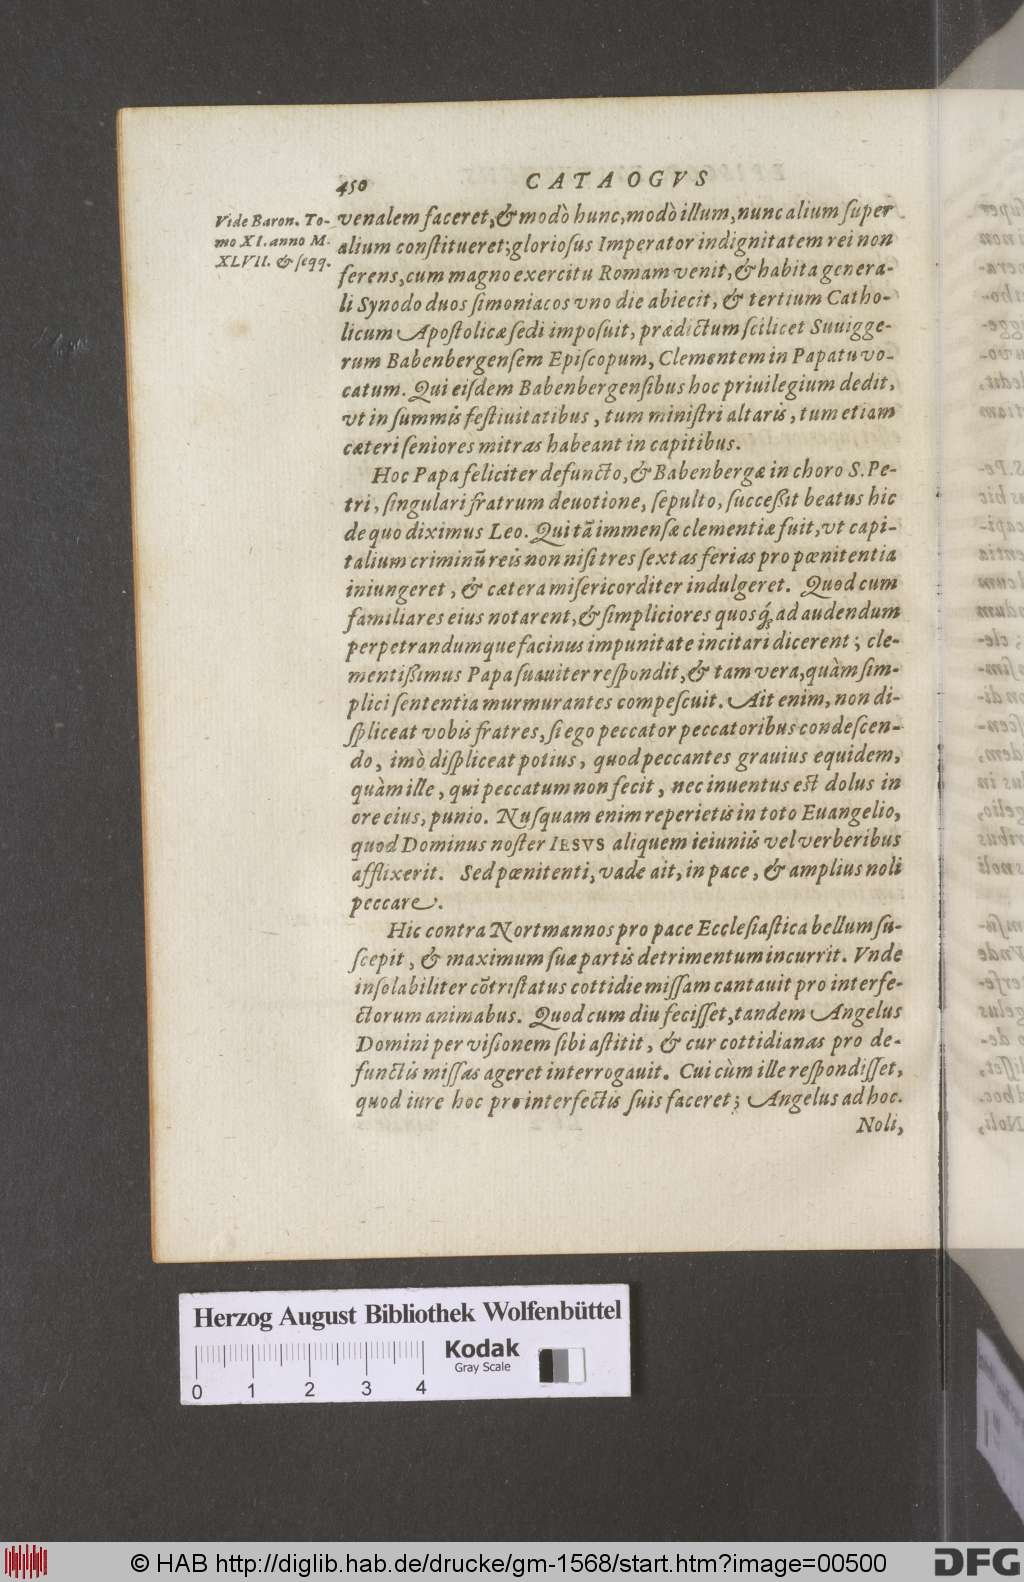 450 CATAOGVS
Vide Baron. To-
mo XI. anno M.
XLVII. & ſeqq.
venalem faceret, & modò hunc, modò illum, nunc alium ſuper
alium conſtitueret; glorioſus Imperator indignitatem rei non
ferens, cum magno exercitu Romam venit, & habita genera-
li Synodo duos ſimoniacos vno die abiecit, & tertium Catho-
licum Apoſtolicæ ſedi impoſuit, prædictum ſcilicet Suuigge-
rum Babenbergenſem Epiſcopum, Clementem in Papatu vo-
catum. Qui eiſdem Babenbergenſibus hoc priuilegium dedit,
vt in ſummis feſtiuitatibus, tum miniſtri altaris, tum etiam
cæteri ſeniores mitras habeant in capitibus.
Hoc Papa feliciter defuncto, & Babenbergæ in choro S. Pe-
tri, ſingulari fratrum deuotione, ſepulto, ſucceßit beatus hic
de quo diximus Leo. Qui tā immenſæ clementiæ fuit, vt capi-
talium criminū reis non niſi tres ſextas ferias pro pœnitentia
iniungeret, & cætera miſericorditer indulgeret. Quod cum
familiares eius notarent, & ſimpliciores quosq́; ad audendum
perpetrandumque facinus impunitate incitari dicerent; cle-
mentißimus Papa ſuauiter reſpondit, & tam vera, quàm ſim-
plici ſententia murmurantes compeſcuit. Ait enim, non di-
ſpliceat vobis fratres, ſi ego peccator peccatoribus condeſcen-
do, imò diſpliceat potius, quod peccantes grauius equidem,
quàm ille, qui peccatum non fecit, nec inuentus est dolus in
ore eius, punio. Nuſquam enim reperietis in toto Euangelio,
quod Dominus noſter IESVS aliquem ieiuniis vel verberibus
afflixerit. Sed pœnitenti, vade ait, in pace, & amplius noli
peccare.
Hic contra Nortmannos pro pace Eccleſiaſtica bellum ſu-
ſcepit, & maximum ſuæ partis detrimentum incurrit. Vnde
inſolabiliter cōtriſtatus cottidie miſſam cantauit pro interfe-
ctorum animabus. Quod cum diu feciſſet, tandem Angelus
Domini per viſionem ſibi aſtitit, & cur cottidianas pro de-
functis miſſas ageret interrogauit. Cui cùm ille reſpondiſſet,
quod iure hoc pro interfectis ſuis faceret; Angelus ad hoc.
Noli,
Herzog August Bibliothek Wolfenbüttel
Kodak
Gray Scale
0 1 2 3 4
© HAB http://diglib.hab.de/drucke/gm-1568/start.htm?image=00500
DFG